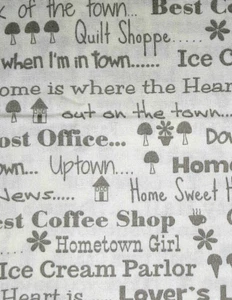 k of the town... Best Co
Quilt Shoppe.....
when I'm in town...... Ice C
ome is where the Hear
out on the town....
ost Office... Dow
own... Uptown.... Home
News..... Home Sweet H
est Coffee Shop
Hometown Girl
Ice Cream Parlor
Heart is.... Lover's L